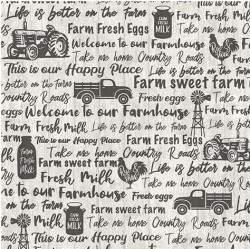 Life is better on the Farm
Farm Fresh Eggs
FARM FRESH MILK
Welcome to our Farmhouse
Take me home Country Roads
This is our Happy Place
Life is better on the
Fresh eggs Farm sweet farm
Take me home Country
Farm, Fresh, Milk Welcome to our Farmhouse
Life is better on the Farm
FARM FRESH MILK
Farm Fresh Milk
Farm Fresh Eggs
Farm sweet farm
Take me home Country
Welcome to our Farmhouse
Fresh eggs
Life is better on the Farm
FARM FRESH MILK
Farm Fresh Eggs
Welcome to our Farmhouse
Take me home Country Roads
This is our Happy Place